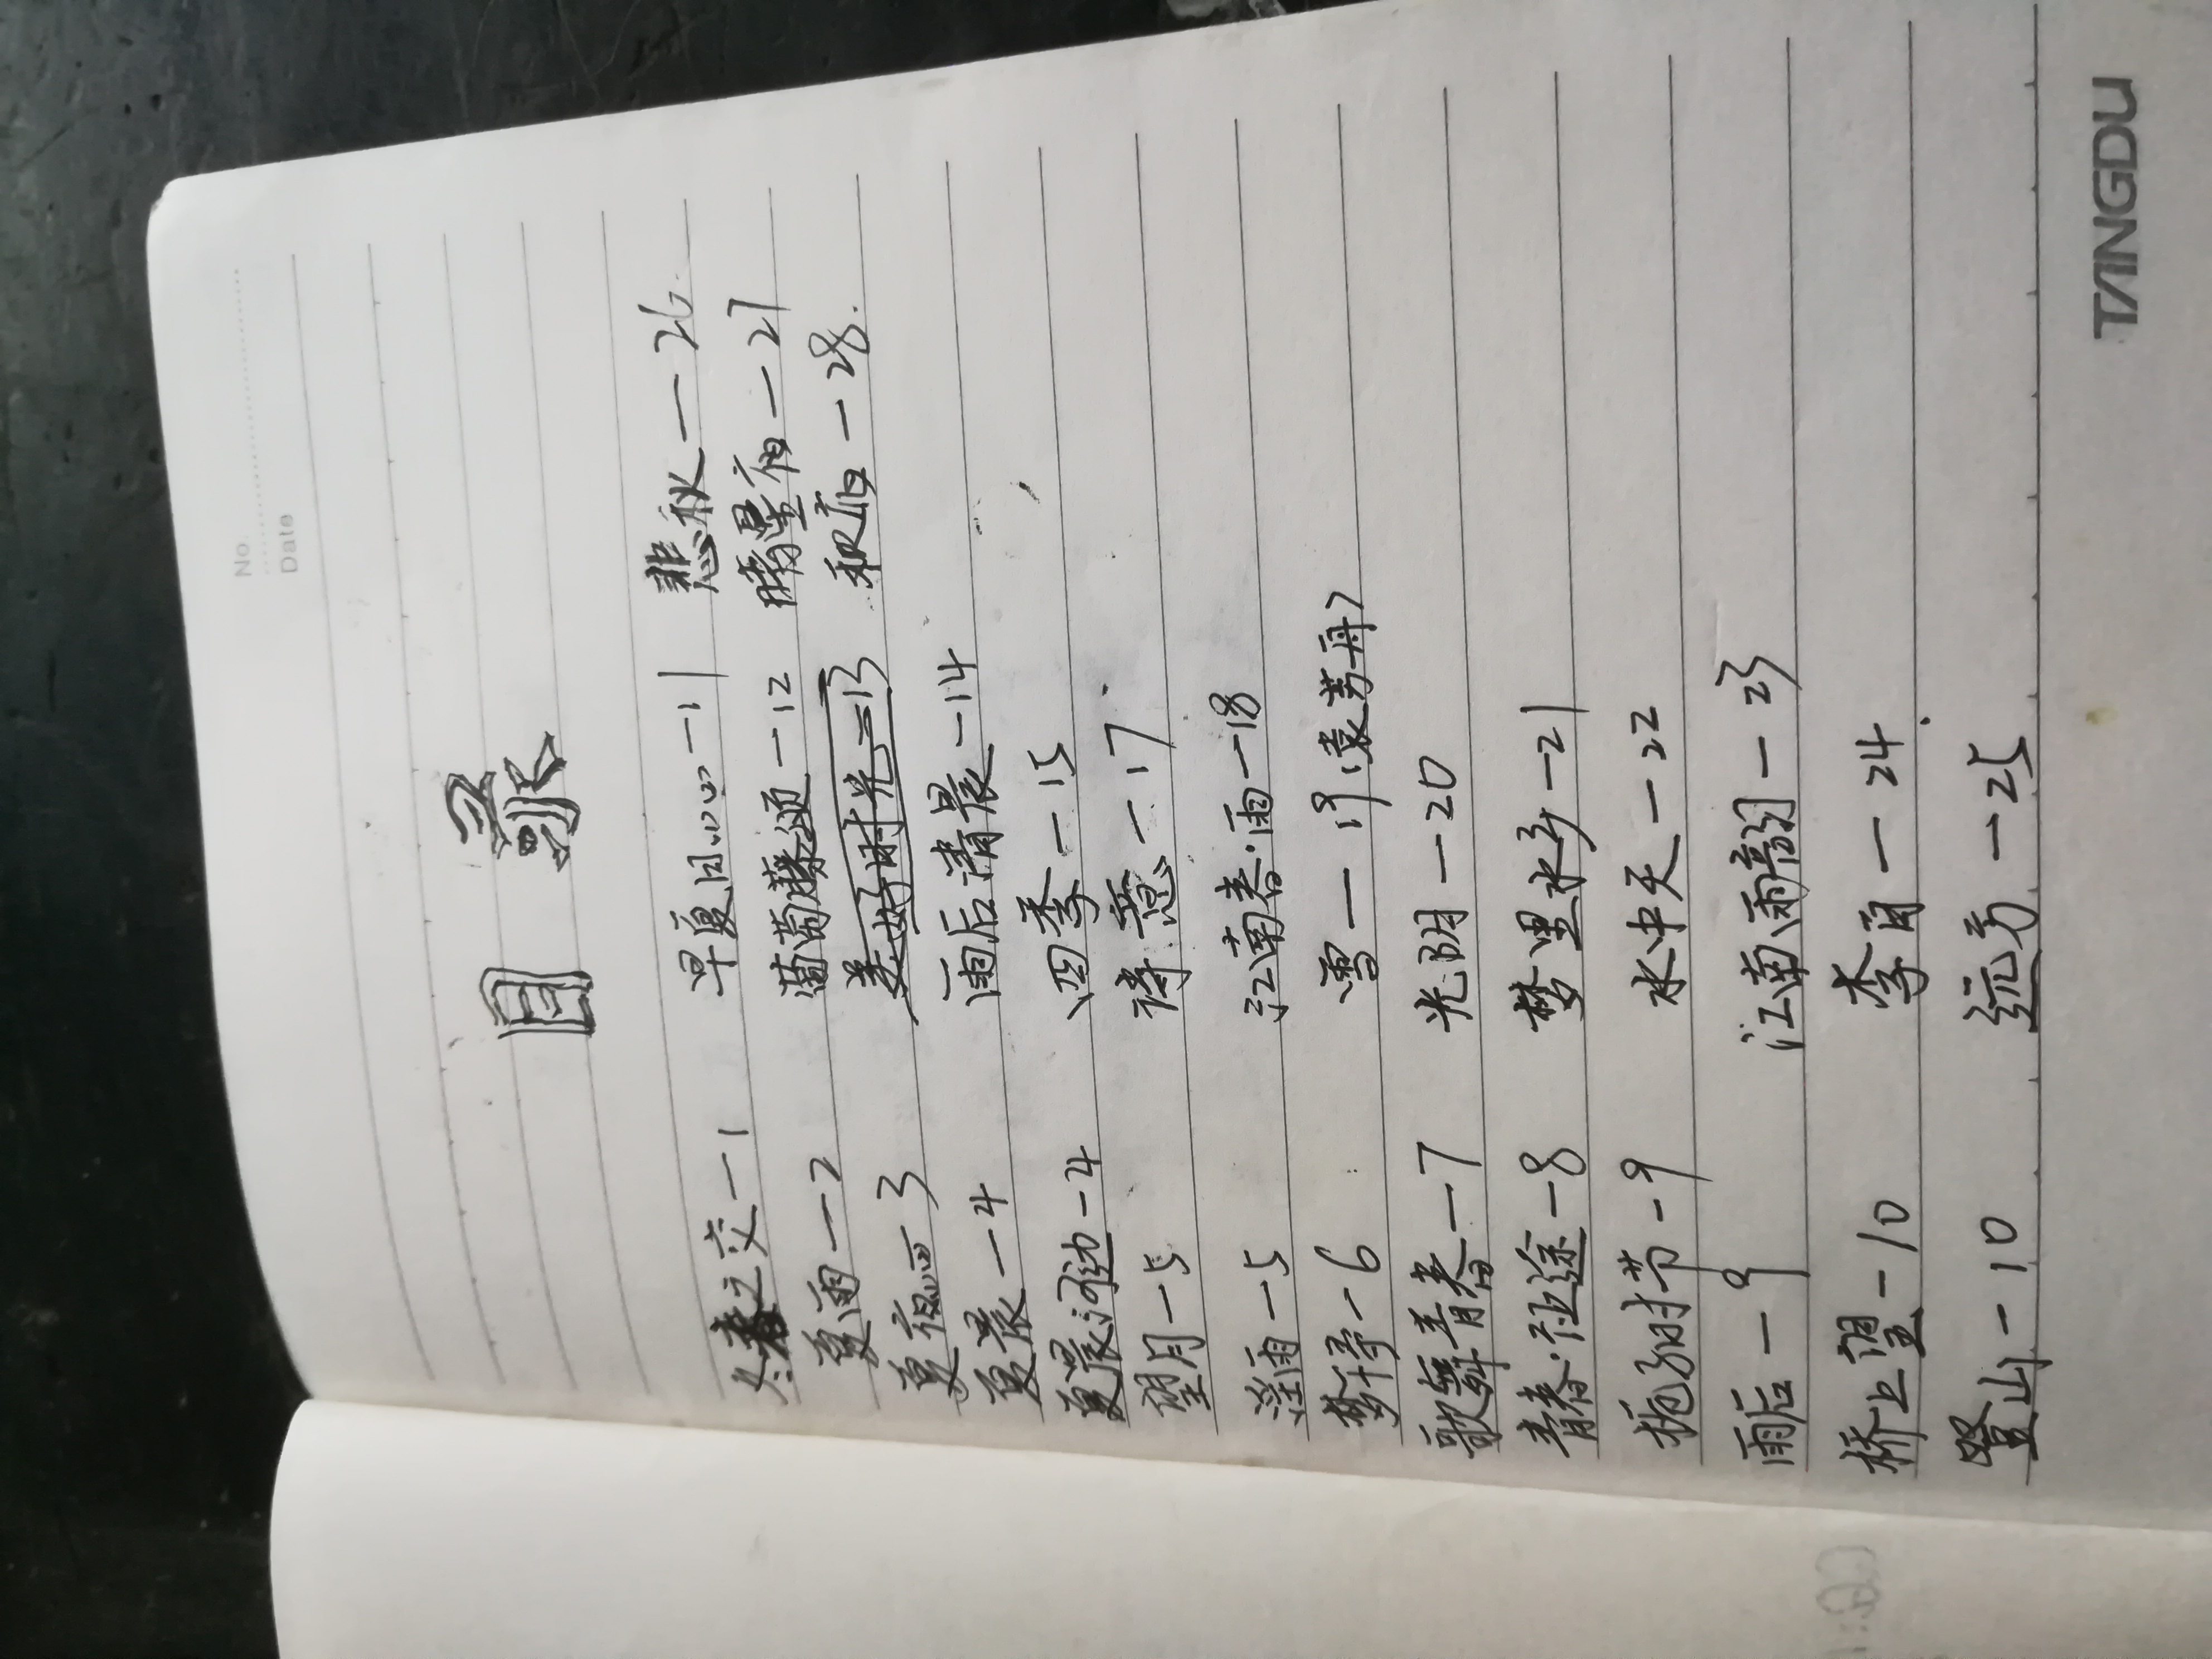 No.
Date
目录
冬春之交—1 早夏回忆—11 悲秋—26
夏雨—2 葡萄藤颂—12 晴星夜—27
夏夜—3 美好时光—13 秋夜—28
夏晨—4 雨后清晨—14
夏晨河边—4 四季—15
望月—5 诗意—17
淫雨—5 江南春·雨—18
梦得—6 雪—19〈袁梦丹〉
歌舞青春—7 光阴—20
青春·征途—8 梦里水乡—21
栀子时节—9 水中天—22
雨后—9 江南雨韵—23
桥上望—10 李甫—24
登山—10 远方—25
TANGDU